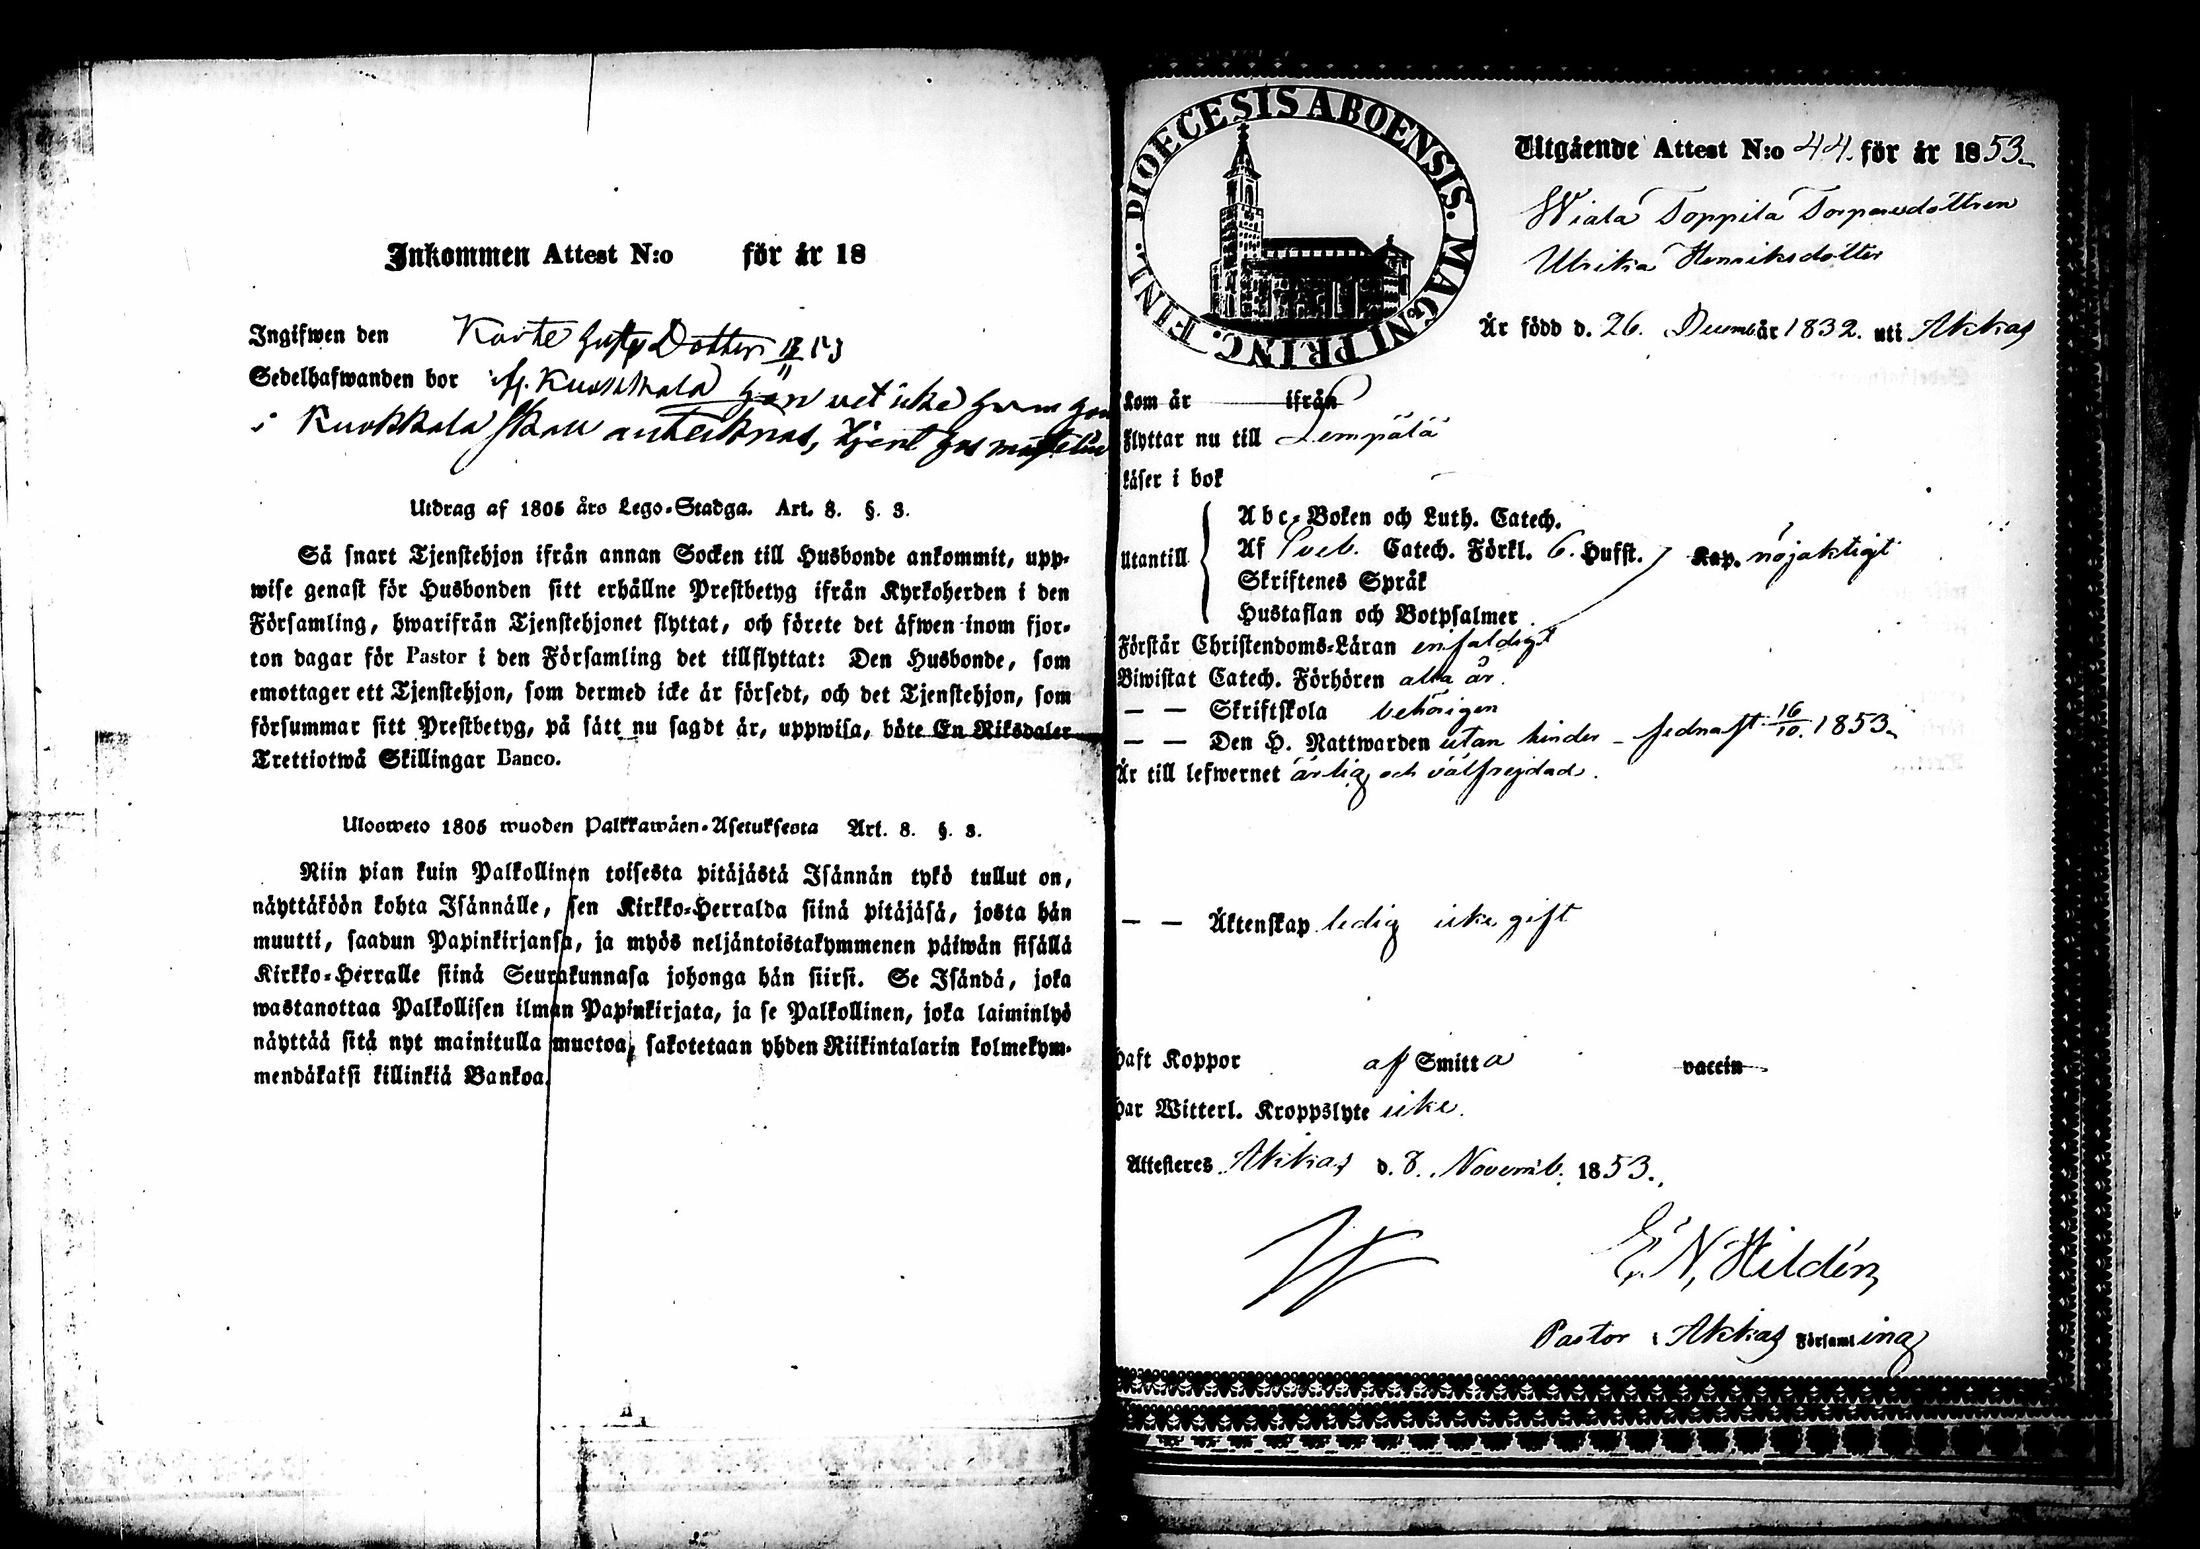 Inkommen Attest N:o för år 18
Ingifwen den Karte Gust Dotter 18 53
Sedelhafwanden bor Kuokkala han vet icke
i Kuokkala skall antecknas, tjent hos
Utdrag af 1805 års Lego-Stadga. Art. 8. §. 3.
Så snart Tjenstehjon ifrån annan Socken till Husbonde ankommit, upp-
wise genast för Husbonden sitt erhållne Prestbetyg ifrån Kyrkoherden i den
Församling, hwarifrån Tjenstehjonet flyttat, och förete det äfwen inom fjor-
ton dagar för Pastor i den Församling det tillflyttat: Den Husbonde, som
emottager ett Tjenstehjon, som dermed icke är försedt, och det Tjenstehjon, som
försummar sitt Prestbetyg, på sätt nu sagdt är, uppwisa, böte En Riksdaler
Trettiotwå Skillingar Banco.
Ulosweto 1805 wuoden Palkkawäen-Asetuksesta Art. 8. §. 3.
Niin pian kuin Palkollinen toisesta pitäjästä Isännän tykö tullut on,
näyttäköön kohta Isännälle, sen Kirkko-Herralda siinä pitäjäsä, josta hän
muutti, saadun Papinkirjansa, ja myös neljäntoistakymmenen päiwän sisällä
Kirkko-Herralle siinä Seurakunnasa johonga hän siirsi. Se Isändä, joka
wastanottaa Palkollisen ilman Papinkirjata, ja se Palkollinen, joka laiminlyö
näyttää sitä nyt mainitulla muotoa, sakotetaan yhden Riikintalarin kolmekym-
mendäkaksi killinkiä Bankoa.
DIOECESIS ABOENSIS. MAGNI PRINC. FINL.
Utgående Attest N:o 44. för år 1853.
Wiala Toppila Torparedottren
Ulrika Henriksdotter
Är född d. 26. Decemb år 1832. uti Akkas
Kom år ifrån
Flyttar nu till Lempälä
Läser i bok
Utantill
Abc-Boken och Luth. Catech.
Af Sveb. Catech. Förkl. 6. Hufst. Kap. nöjaktigt
Skriftenes Språk
Hustaflan och Botpsalmer
Förstår Christendoms-Läran enfaldigt
Biwistat Catech. Förhören alla år.
— — Skriftskola behörigen
— — Den H. Nattwarden utan hinder – sednast 16/10. 1853.
Är till lefwernet ärlig och välfrejdad.
— — Äktenskap ledig icke gift
Haft Koppor af Smitta vaccin
Har Witterl. Kroppslyte icke.
Attesteres Akkas d. 8. Novemb. 1853.
E. N. Hildén
Pastor i Akkas Församling